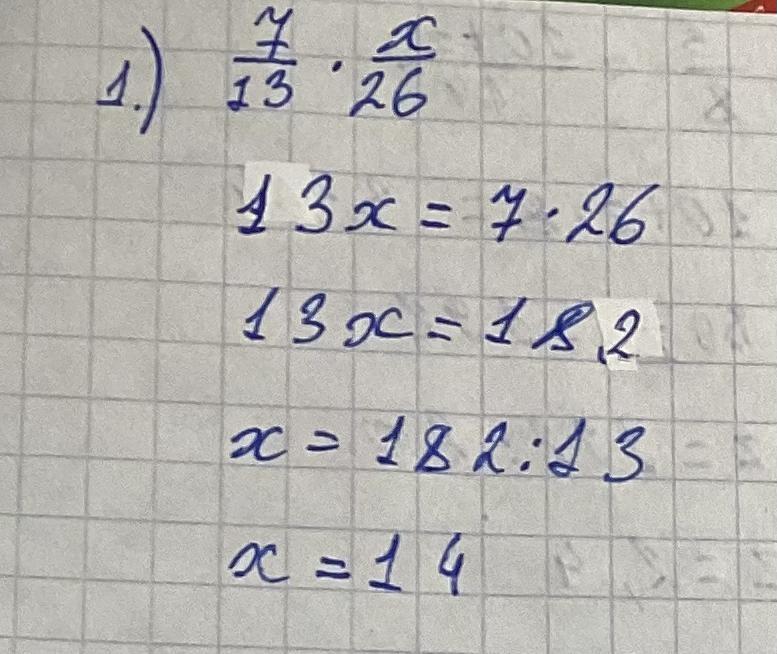 1.) 7/13 · x/26
13x = 7 · 26
13x = 182
x = 182 : 13
x = 14